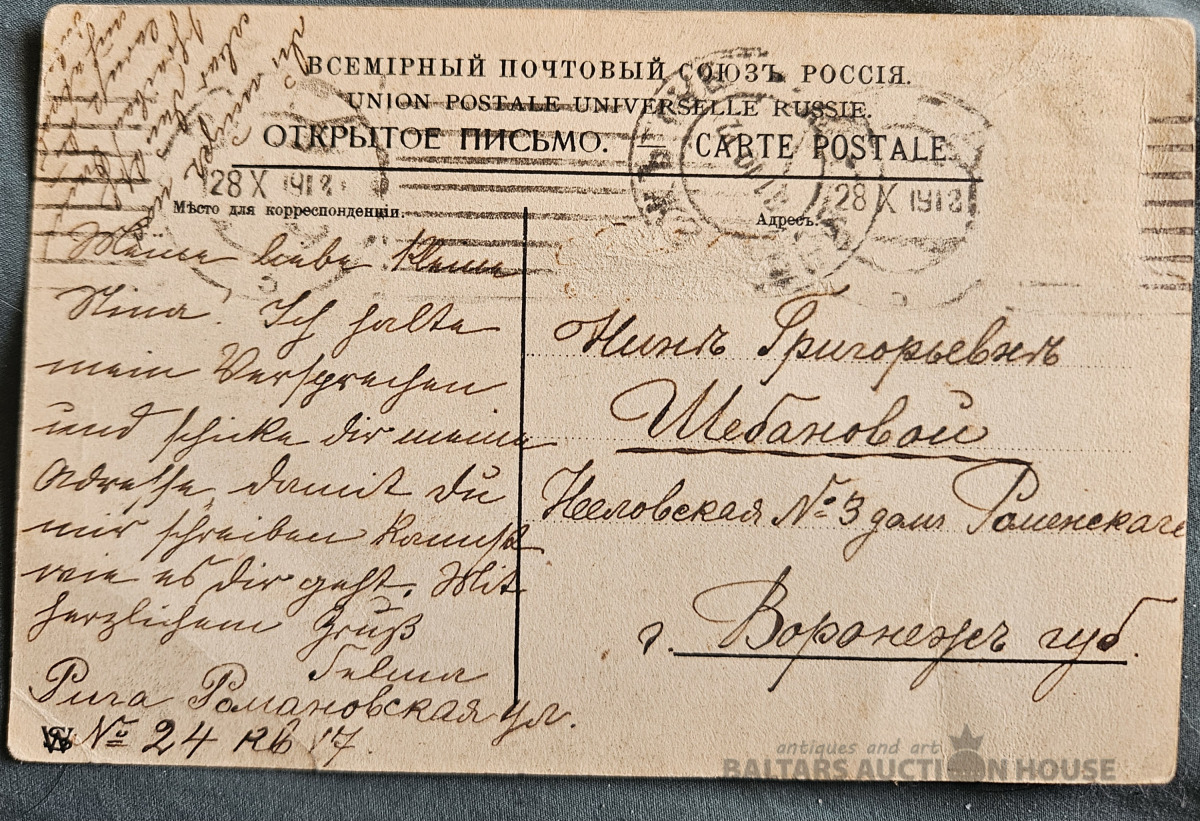 ВСЕМІРНЫЙ ПОЧТОВЫЙ СОЮЗЪ РОССІЯ.
UNION POSTALE UNIVERSELLE RUSSIE.
ОТКРЫТОЕ ПИСЬМО. — CARTE POSTALE
28 X 1912
28 X 1912
Мѣсто для корреспонденціи.
Адресъ.
Meine liebe kleine
Nina. Ich halte
mein Versprechen
und schicke dir meine
Adresse, damit du
mir schreiben kannst
wie es dir geht. Mit
herzlichem Gruß
Selma
Рига Романовская ул.
№ 24 кв 17.
Нинѣ Григорьевнѣ
Шебановой
№ 3 домъ Роменскаго
г. Воронежъ губ.
WS
antiques and art
BALTARS AUCTION HOUSE